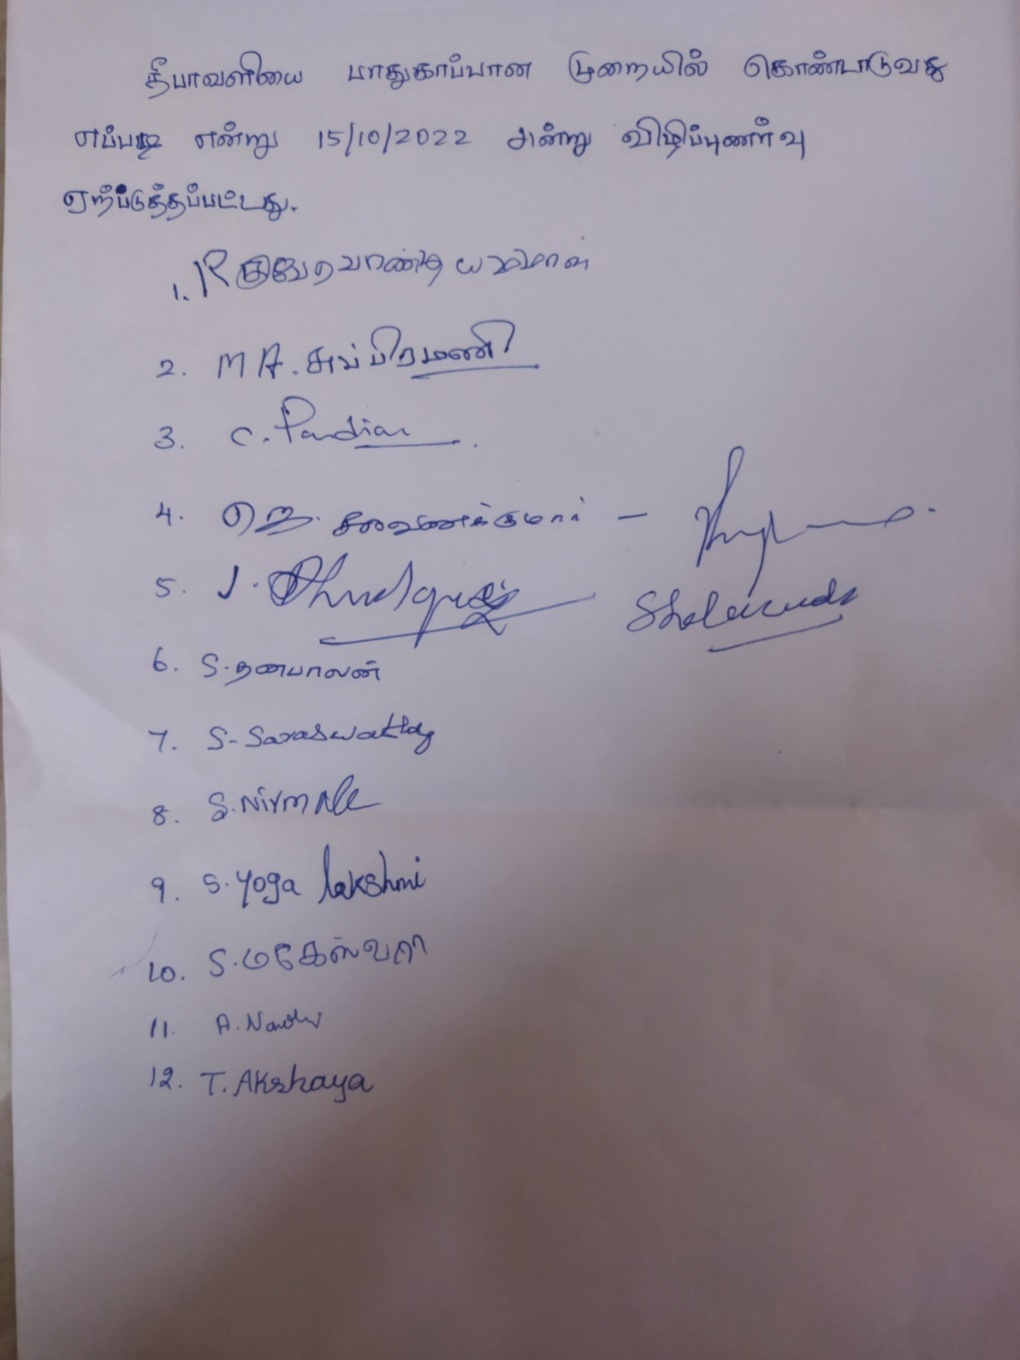 தீபாவளியை பாதுகாப்பான முறையில் கொண்டாடுவது
எப்படி என்று 15/10/2022 அன்று விழிப்புணர்வு
ஏற்படுத்தப்பட்டது.
1.
2. M A. சுப்பிரமணி
3. C. Pandian
4. ஜெ. சரவணக்குமார் -
5. J.
6. S. தனபாலன்
7. S- Saraswathy
8. S. Nirmala
9. S. Yoga lakshmi
10. S. மகேஸ்வரி
11. A.
12. T. Akshaya